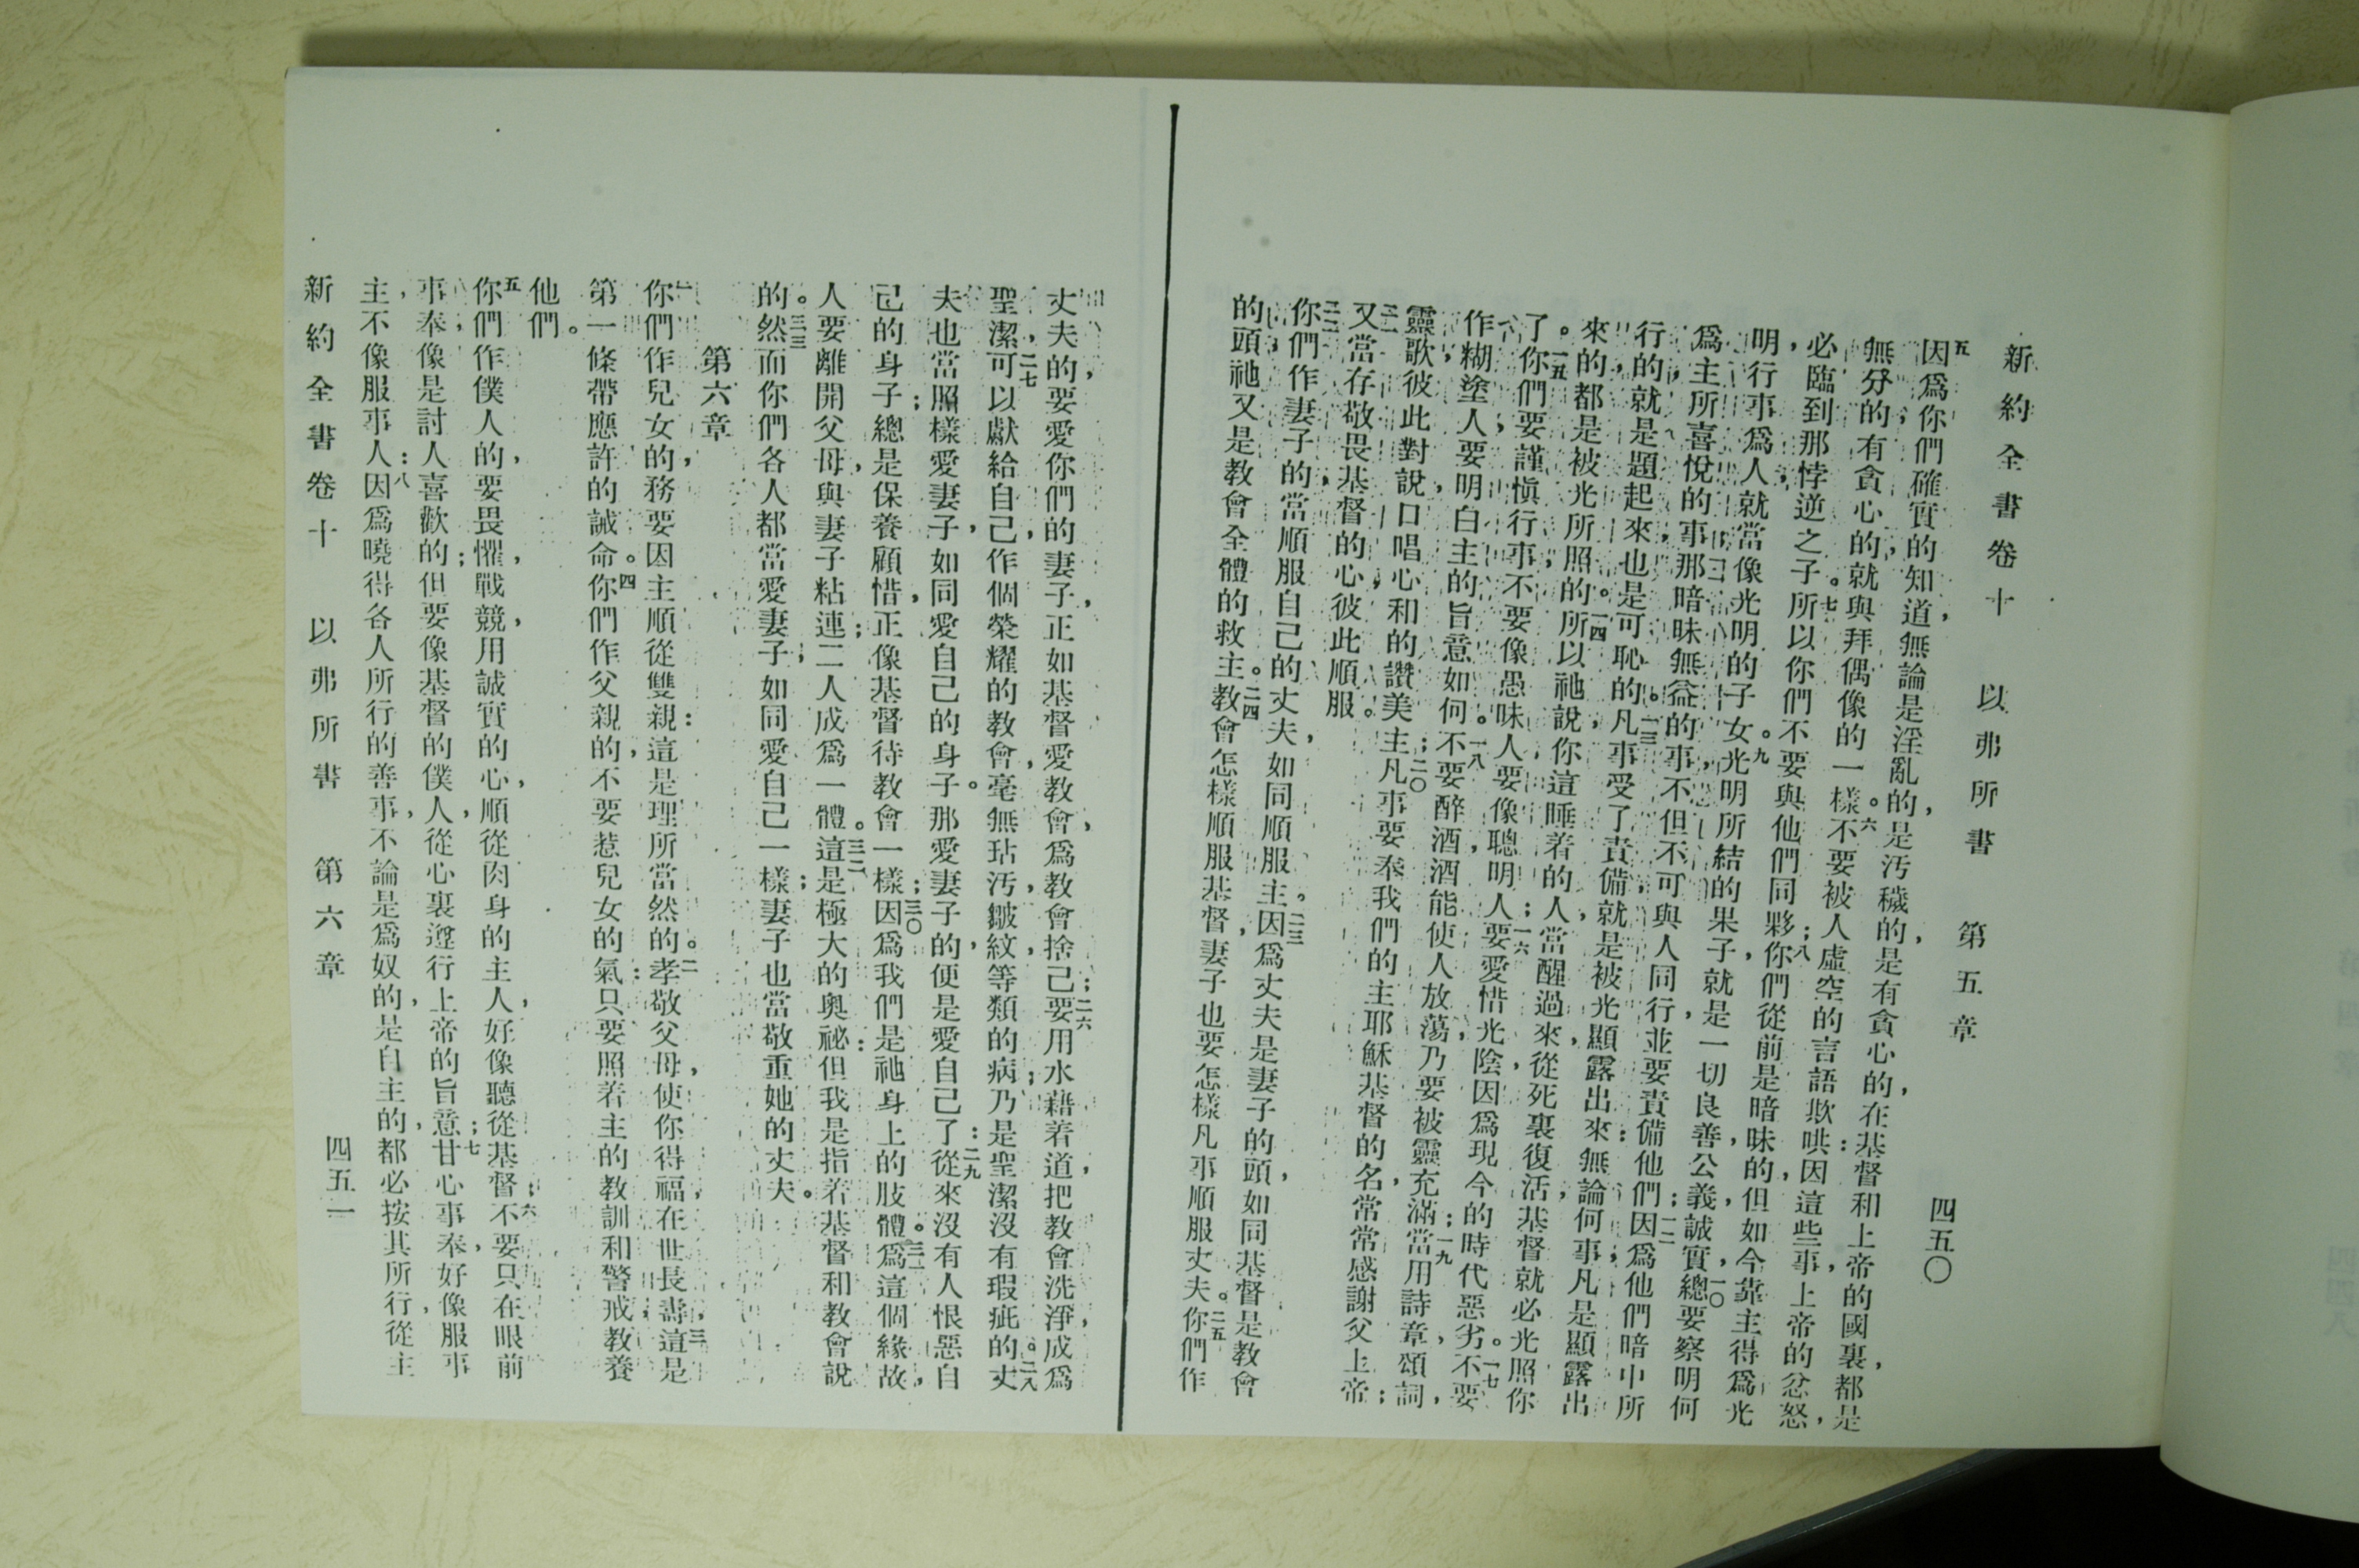 新約全書卷十 以弗所書 第五章 四五〇
五因爲你們確實的知道，無論是淫亂的，是汚穢的，是有貪心的，在基督和上帝的國裏，都是
無分的；有貪心的，就與拜偶像的一樣。六不要被人虛空的言語欺哄：因這些事，上帝的忿怒，
必臨到那悖逆之子。七所以你們不要與他們同夥；八你們從前是暗昧的，但如今靠主得爲光
明，行事爲人，就當像光明的子女。九光明所結的果子，就是一切良善，公義，誠實，一〇總要察明何
爲主所喜悅的事。那暗昧無益的事，不但不可與人同行，並要責備他們；一二因爲他們暗中所
行的，就是題起來，也是可恥的。一三凡事受了責備，就是被光顯露出來：無論何事，凡是顯露出
來的，都是被光所照的。一四所以祂說，你這睡着的人，當醒過來，從死裏復活，基督就必光照你
了。一五你們要謹愼行事，不要像愚昧人，要像聰明人；一六要愛惜光陰，因爲現今的時代惡劣。一七不要
作糊塗人，要明白主的旨意如何。一八不要醉酒，酒能使人放蕩，乃要被靈充滿；一九當用詩章，頌詞，
靈歌，彼此對說，口唱心和的讚美主；二〇凡事要奉我們的主耶穌基督的名，常常感謝父上帝；
二一又當存敬畏基督的心，彼此順服。
二二你們作妻子的，當順服自己的丈夫，如同順服主。二三因爲丈夫是妻子的頭，如同基督是教會
的頭，祂又是教會全體的救主。二四教會怎樣順服基督，妻子也要怎樣凡事順服丈夫。二五你們作
丈夫的，要愛你們的妻子，正如基督愛教會，爲教會捨己；二六要用水藉着道，把教會洗淨，成爲
聖潔，二七可以獻給自己，作個榮耀的教會，毫無玷汚，皺紋，等類的病；乃是聖潔沒有瑕疵的。二八丈
夫也當照樣愛妻子，如同愛自己的身子。那愛妻子的，便是愛自己了：二九從來沒有人恨惡自
己的身子；總是保養顧惜，正像基督待教會一樣；三〇因爲我們是祂身上的肢體。三一爲這個緣故，
人要離開父母，與妻子粘連；二人成爲一體。三二這是極大的奧祕：但我是指着基督和教會說
的。三三然而你們各人都當愛妻子；如同愛自己一樣；妻子也當敬重她的丈夫。
第六章
一你們作兒女的，務要因主順從雙親：這是理所當然的。二孝敬父母，使你得福，在世長壽，三這是
第一條帶應許的誡命。四你們作父親的，不要惹兒女的氣：只要照着主的教訓和警戒；教養
他們。
五你們作僕人的，要畏懼，戰競，用誠實的心，順從肉身的主人，好像聽從基督；六不要只在眼前
事奉，像是討人喜歡的；但要像基督的僕人，從心裏遵行上帝的旨意；七甘心事奉，好像服事
主，不像服事人：八因爲曉得各人所行的善事，不論是爲奴的，是自主的，都必按其所行，從主
新約全書卷十 以弗所書 第六章 四五一